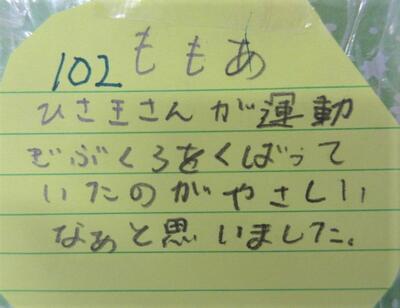 102 ももあ
ひさきさんが運動
ぎぶくろをくばって
いたのがやさしい
なぁと思いました。